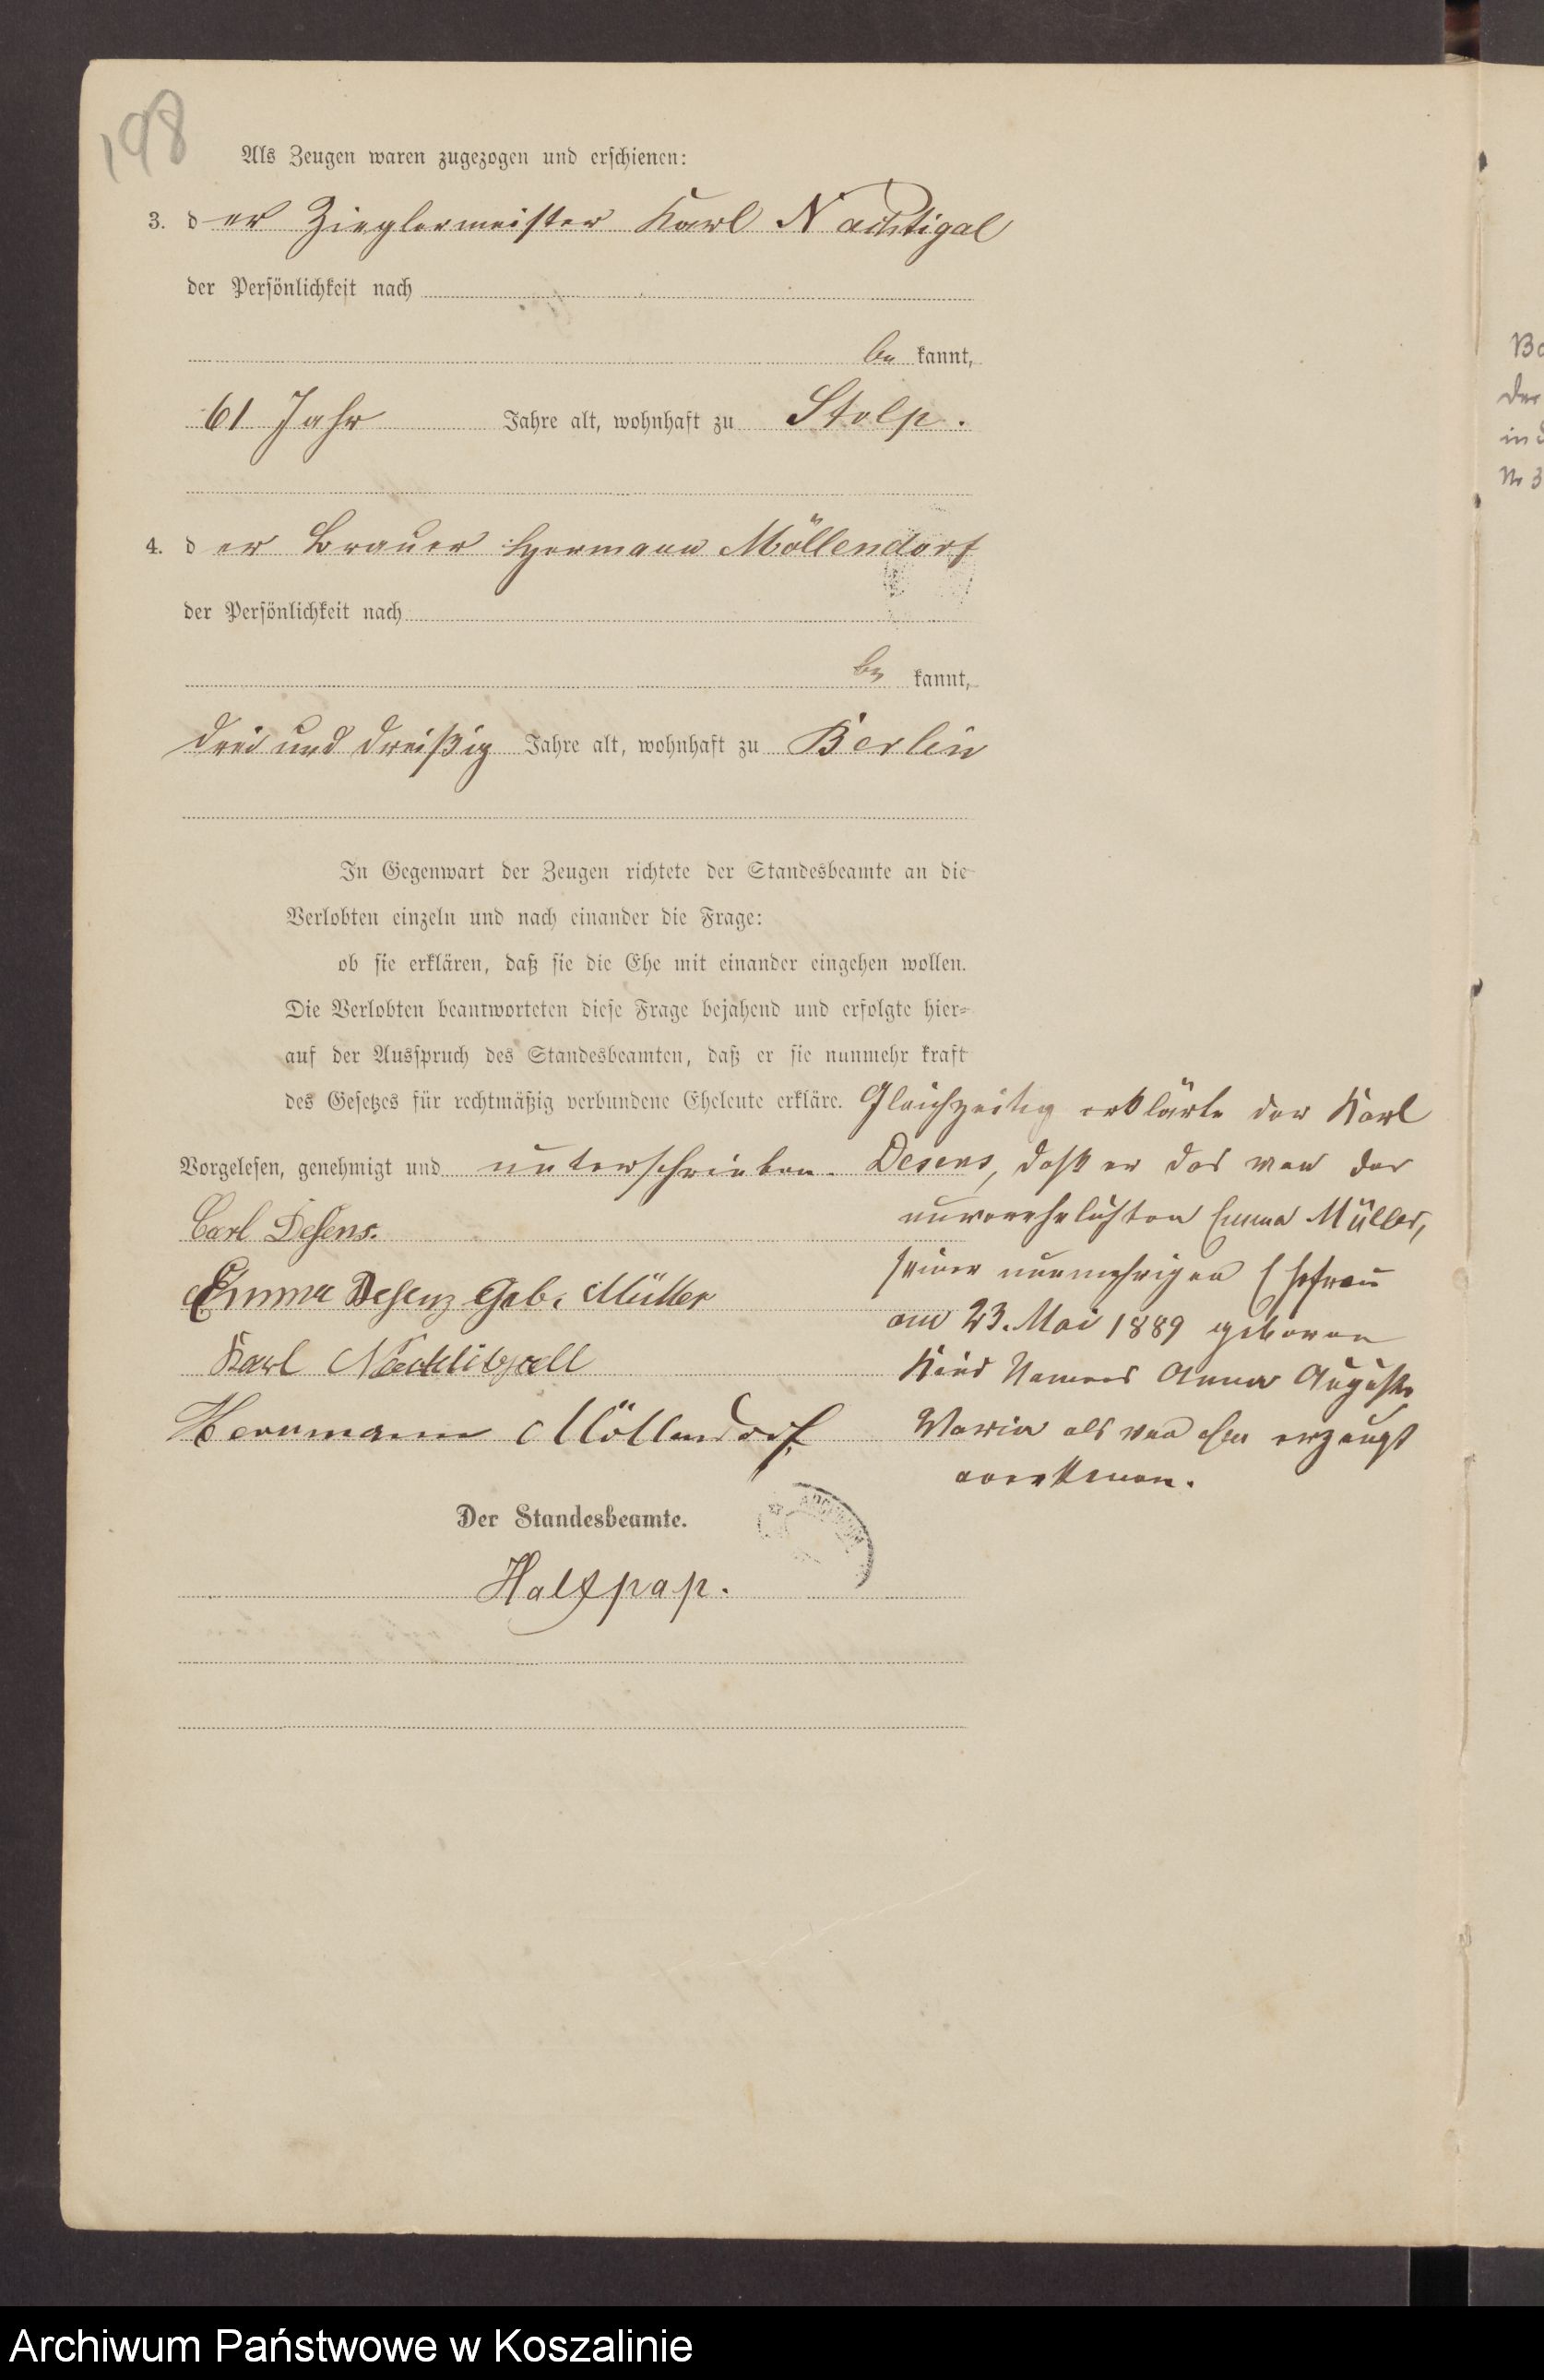 198
Als Zeugen waren zugezogen und erschienen:
3. der Zieglermeister Karl Nachtigal
der Persönlichkeit nach
be kannt,
61 Jahr Jahre alt, wohnhaft zu Stolp.
4. der Brauer Hermann Möllendorf
der Persönlichkeit nach
be kannt,
drei und dreißig Jahre alt, wohnhaft zu Berlin
In Gegenwart der Zeugen richtete der Standesbeamte an die
Verlobten einzeln und nach einander die Frage:
ob sie erklären, daß sie die Ehe mit einander eingehen wollen.
Die Verlobten beantworteten diese Frage bejahend und erfolgte hier-
auf der Ausspruch des Standesbeamten, daß er sie nunmehr kraft
des Gesetzes für rechtmäßig verbundene Eheleute erkläre.
Vorgelesen, genehmigt und unterschrieben.
Carl Desens.
Emma Desenz Geb. Müller
Karl Nachtigall
Herrmann Möllendorf
Der Standesbeamte.
Halfpap.
Gleichzeitig erklärte der Karl
Desens, daß er das von der
unverehelichten Emma Müller,
seiner nunmehrigen Ehefrau
am 23. Mai 1889 geboren
Kind Namens Anna Auguste
Maria als von ihm erzeugt
anerkenne.
in
Nr 3
Archiwum Państwowe w Koszalinie